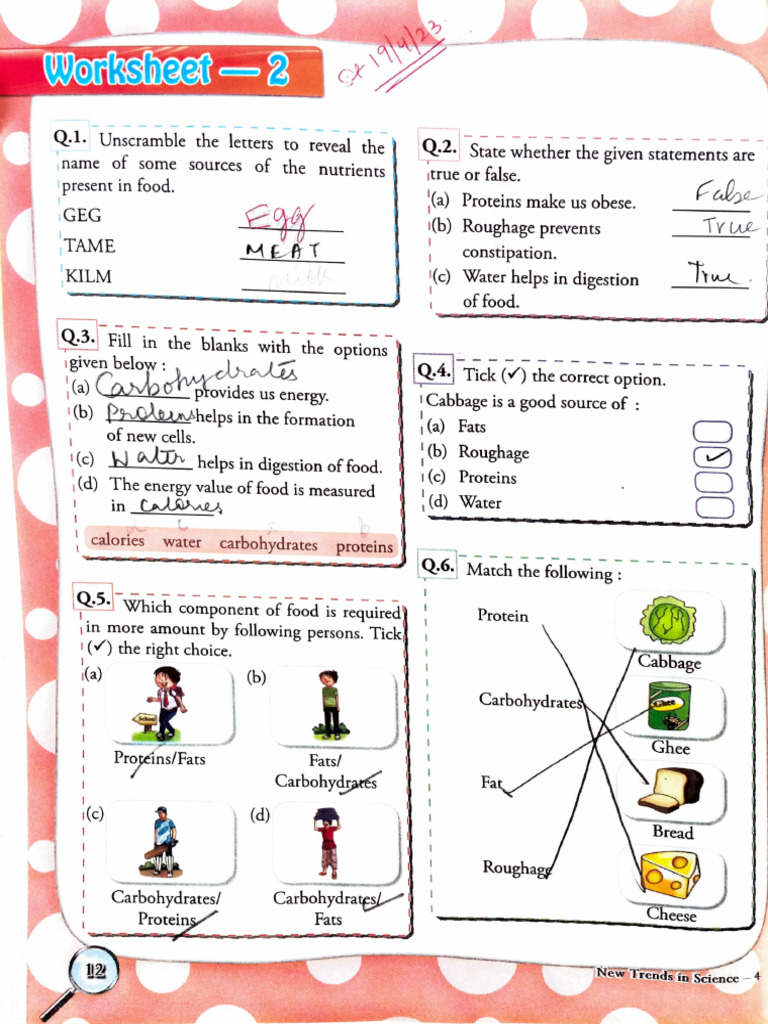 Worksheet — 2
19/4/23
Q.1. Unscramble the letters to reveal the
name of some sources of the nutrients
present in food.
GEG Egg
TAME MEAT
KILM milk
Q.2. State whether the given statements are
true or false.
(a) Proteins make us obese. False
(b) Roughage prevents True
constipation.
(c) Water helps in digestion True.
of food.
Q.3. Fill in the blanks with the options
given below :
(a) Carbohydrates provides us energy.
(b) Proteins helps in the formation
of new cells.
(c) Water helps in digestion of food.
(d) The energy value of food is measured
in calories
calories water carbohydrates proteins
Q.4. Tick (✓) the correct option.
Cabbage is a good source of :
(a) Fats
(b) Roughage ✓
(c) Proteins
(d) Water
Q.5. Which component of food is required
in more amount by following persons. Tick
(✓) the right choice.
(a) (b)
School
Proteins/Fats Fats/
Carbohydrates
(c) (d)
Carbohydrates/ Carbohydrates/
Proteins Fats
Q.6. Match the following :
Protein
Cabbage
Carbohydrates
Ghee
Ghee
Fat
Bread
Roughage
Cheese
12
New Trends in Science – 4